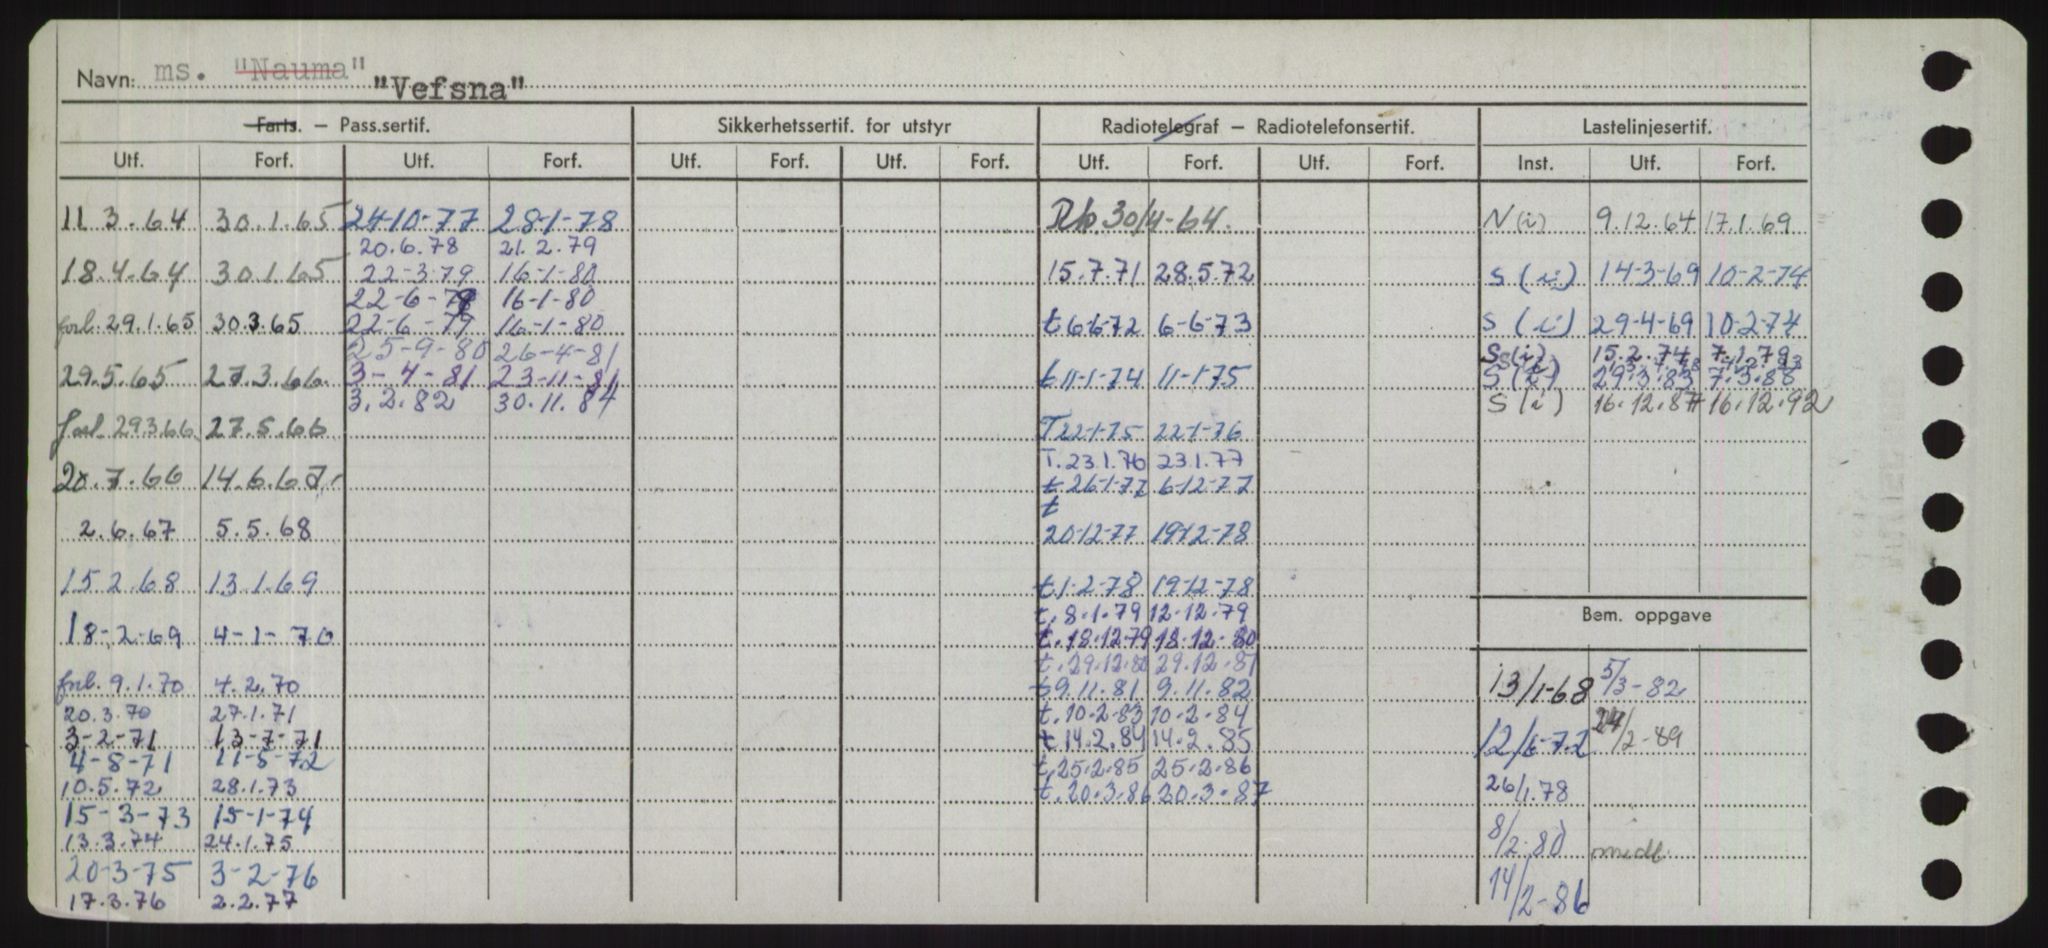 Navn: ms. "Nauma" "Vefsna"
Farts. – Pass.sertif. Sikkerhetssertif. for utstyr Radiotelegraf – Radiotelefonsertif. Lastelinjesertif.
Utf. Forf. Utf. Forf. Utf. Forf. Utf. Forf. Utf. Forf. Utf. Forf. Inst. Utf. Forf.
11.3.64 30.1.65
18.4.64 30.1.65
forl. 29.1.65 30.3.65
29.5.65 27.3.66
forl. 29.3.66 27.5.66
20.7.66 14.6.67
2.6.67 5.5.68
15.2.68 13.1.69
18-2-69 4-1-70
forl. 9.1.70 4.2.70
20.3.70 27.1.71
3-2-71 13-7-71
4-8-71 11-5-72
10.5.72 28.1.73
15-3-73 15-1-74
13.3.74 24.1.75
20-3-75 3-2-76
17.3.76 2.2.77
24-10-77 28-1-78
20.6.78 21.2.79
22-3-79 16-1-80
22-6-79 16-1-80
22-6-79 16-1-80
25-9-80 26-4-81
3-4-81 23-11-81
3.2.82 30.11.84
30/4-64.
15.7.71 28.5.72
t 6-6-72 6-6-73
t 11-1-74 11-1-75
T 22-1-75 22-1-76
T. 23.1.76 23.1.77
t 26-1-77 6-12-77
t
20-12-77 19-12-78
t. 1-2-78 19-12-78
t. 8.1.79 12.12.79
t. 18.12.79 18.12.80
t. 29.12.80 29.12.81
t 9.11.81 9.11.82
t. 10.2.83 10.2.84
t 14.2.84 14.2.85
t. 25.2.85 25.2.86
t. 20.3.86 20.3.87
N (i) 9.12.64 17.1.69
S (i) 14-3-69 10-2-74
S (i) 29-4-69 10.2.74
S (i) 15.2.74 7.1.79
S (i)
S (i) 29.3.83 7.3.88
S (i) 16.12.87 16.12.92
Bem. oppgave
13/1-68 5/3-82
12/6-72 24/2-89
26/1.78
8/2 80 midl.
14/2-86